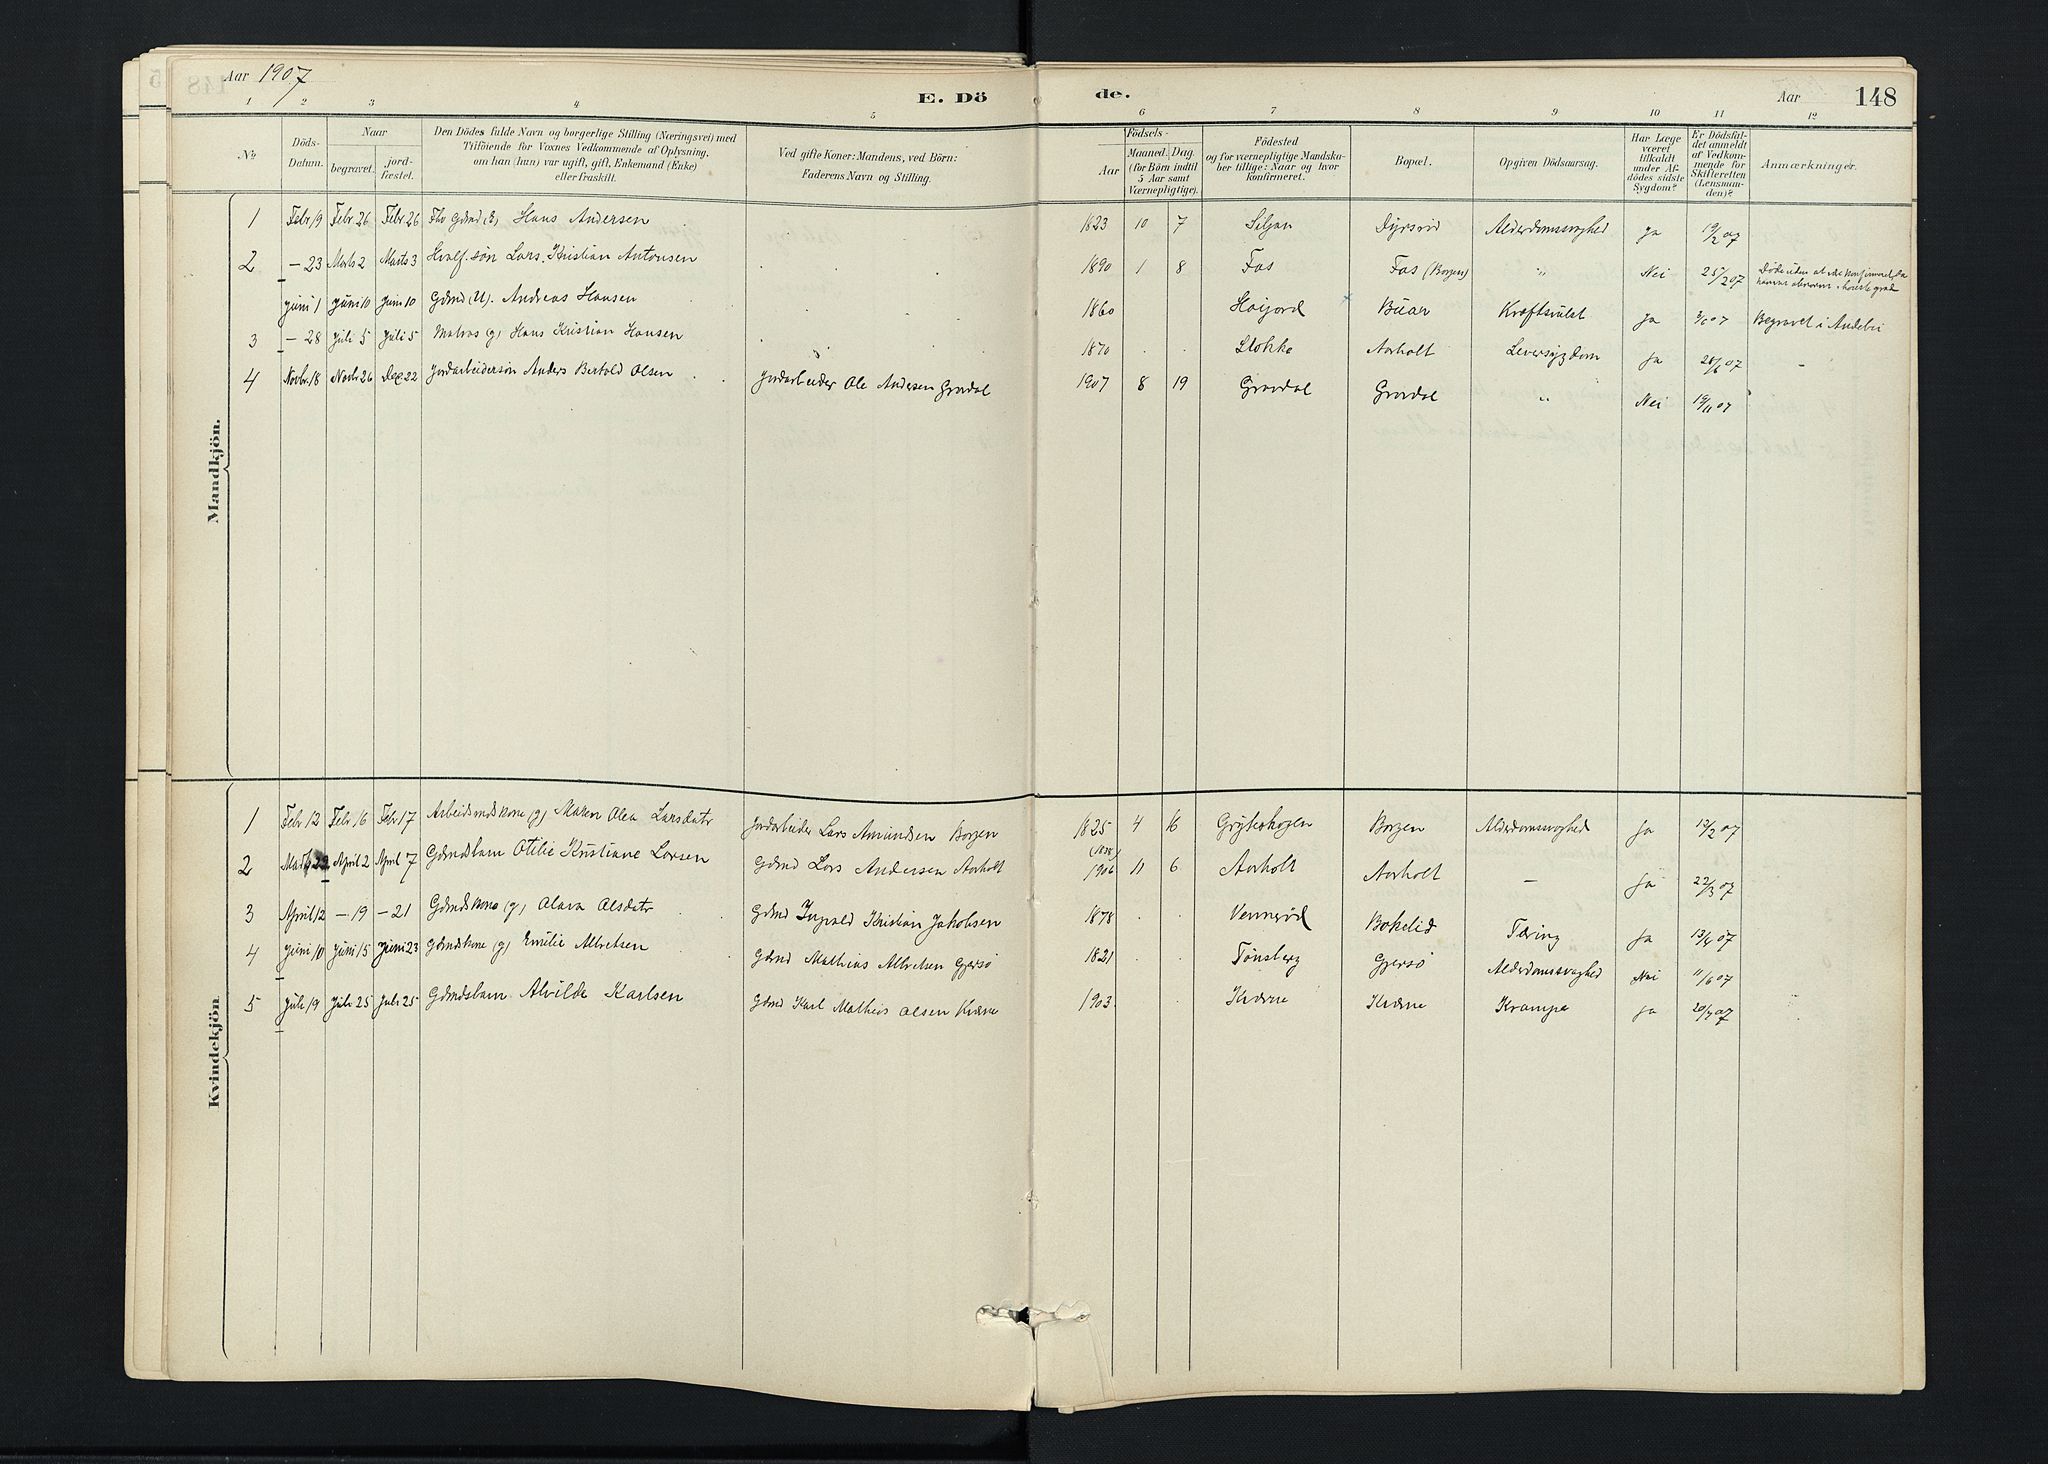 Aar 1907
E. Dö de.
Aar 148
1 2 3 4 5 6 7 8 9 10 11 12
No.
Döds-Datum.
Naar
begravet.
jord-fæstet.
Den Dödes fulde Navn og borgerlige Stilling (Næringsvei) med
Tilföiende for Voxnes Vedkommende af Oplysning,
om han (hun) var ugift, gift, Enkemand (Enke)
eller fraskilt.
Ved gifte Koner: Mandens, ved Börn:
Faderens Navn og Stilling.
Födsels-
Aar
Maaned. Dag.
(for Börn indtil
5 Aar samt
Værnepligtige).
Födested
og for værnepligtige Mandska-
ber tillige: Naar og hvor
konfirmeret.
Bopæl.
Opgiven Dödsaarsag.
Har Læge
været
tilkaldt
under Af-
dödes sidste
Sygdom?
Er Dödsfal-
det anmeldt
af Vedkom-
mende for
Skifteretten
(Lensman-
den)?
Anmærkninger.
Mandkjön.
1 Febr 19 Febr 26 Febr 26 Hans Andersen 1823 10 7 Siljan Dyrsrød Alderdomssvaghed Ja 19/2 07
2 - 23 Marts 2 Marts 3 Hvalf. søn Lars Kristian Antonsen 1890 1 8 Fos Fos (Borgen) " Nei 25/2 07
Juni 1 Juni 10 Juni 10 Gdmd (U). Andreas Hansen 1860 Høijord Buar Kræftsvulst Ja 3/6 07 Begravet i Andebu
3 - 28 Juli 5 Juli 5 Matros (g) Hans Kristian Hansen 1870 . . Stokke Aarholt Leversygdom Ja 28/6 07 -
4 Novbr. 18 Novbr 26 Dec 22 Jordarbeidersøn Anders Bertold Olsen Jordarbeider Ole Andersen Gravdal 1907 8 19 Gravdal Gravdal " Nei 19/11 07
Kvindekjön.
1 Febr 12 Febr 16 Febr 17 Arbeidsmdskone (g) Maren Olea Larsdatr Jordarbeider Lars Amundsen Borgen 1825 4 16 Gryteskogen Borgen Alderdomssvaghed Ja 13/2 07
2 Marts 22 April 2 April 7 Gdmdsbarn Otilie Kristiane Larsen Gdmd Lars Andersen Aarholt 1906 11 6 Aarholt Aarholt - Ja 22/3 07
3 April 12 - 19 - 21 Gdmdskone (g) Olava Olsdatr Gdmd Ingvald Kristian Jakobsen 1878 . . Vennerød Bøkelid Tæring Ja 13/4 07
4 Juni 10 Juni 15 Juni 23 Gdmdskone (g) Emilie Albretsen Gdmd Mathias Albretsen Gjersø 1821 . . Tønsberg Gjersø Alderdomssvaghed Nei 11/6 07
5 Juli 19 Juli 25 Juli 25 Gdmdsbarn Alvilde Karlsen Gdmd Karl Mathias Olsen Kværne 1903 . . Kværne Kværne Krampe Ja 20/7 07